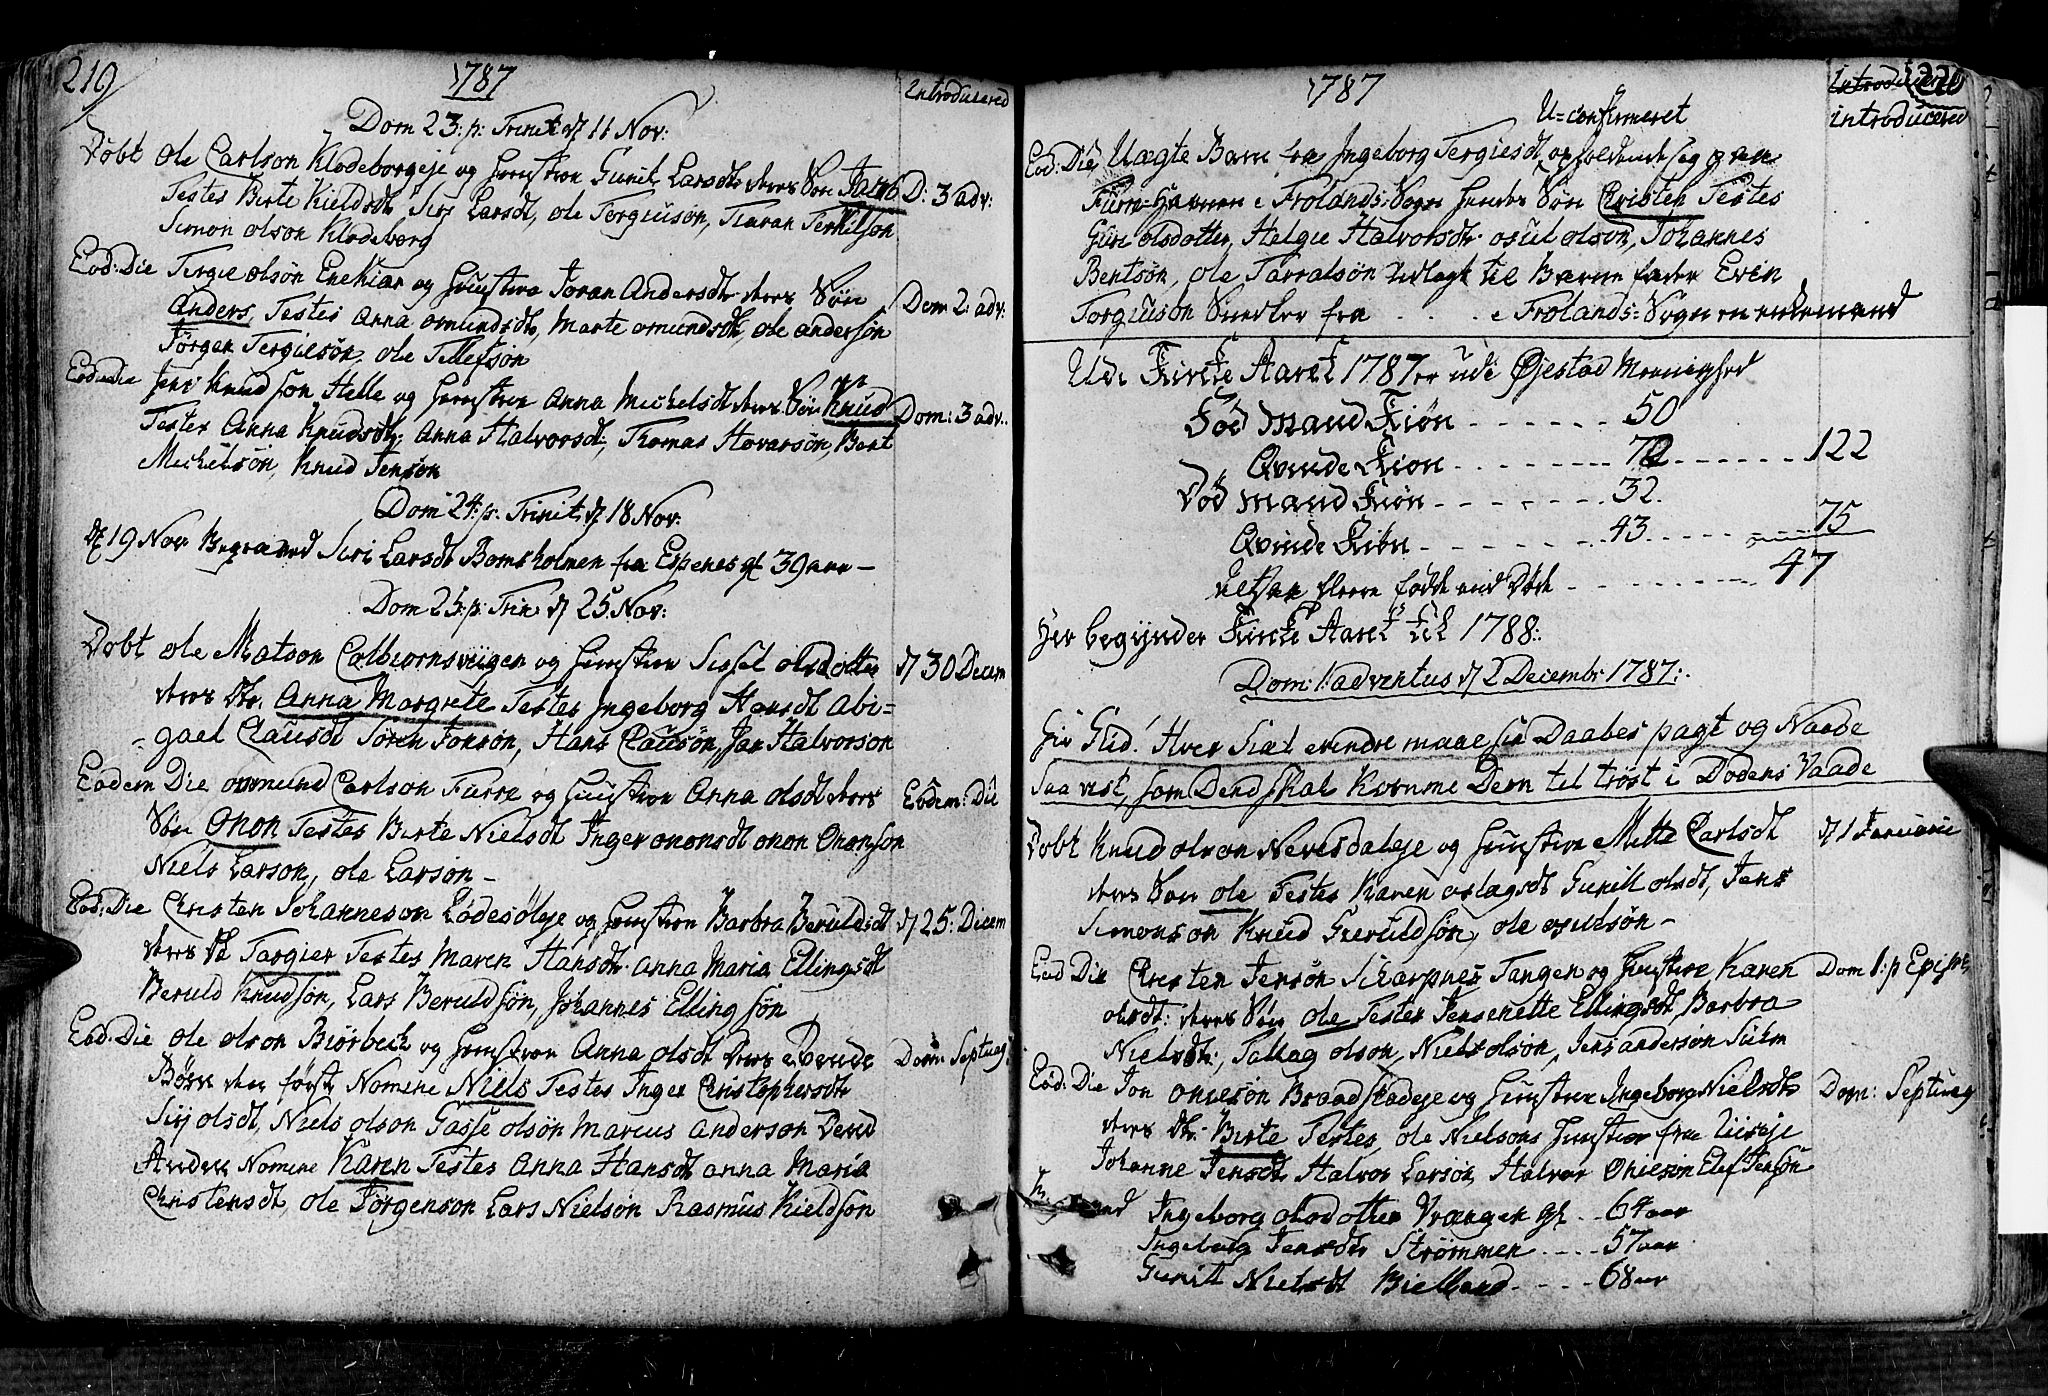 219
1787
Introducered
Dom 23: p: Trinit d 11 Nov:
Døbt Ole Carlson Klodeborgeje og Hustroe Gunil Larsdtr deres Søn Jacob D: 3 adv:
Testes Birte Kieldsdt Siri Larsdt, ole Tergiusøn, Tharan Terkilson
Simon olson Klodeborg
Eod: Die Tergie olsøn Enekiær og Huustroe Joran Andersdt deres Søn
Anders, Testes Anna omundsdt, Marte omundsdt, ole andersøn Dom 2: adv:
Jørgen Tergiesøn, ole Tellefsøn
Eod: Die Jens Knudsson Helle og Huustroe Anna Michelsdt deres Søn Knud Dom: 3 adv:
Testes Anna Knudsdt, Anna Halvorsdt, Thomas Hovarsøn, Bent
Michelsøn, Knud Jensøn
Dom 24: p: Trinit, d 18 Nov:
d 19 Nov Begraved Siri Larsdt Bomsholmen fra Espenes gl 39 aar –
Dom 25: p: Trin: d 25 Nov:
Døbt ole Matson Colbiornsviigen og Huustroe Sissel olsdotter d 30 Decem
deres Dtr. Anna Margrete Testes Ingeborg Hansdt Abi=
gael Clausdt Søren Jonsøn, Hans Clausøn, Jan Halvorson
Eodem Die omund Carlson Furre og Huustroe Anna olsdt deres Eodem: Die
Søn Onon Testes Birte Nielsdt Inger ononsdt onon Ononson
Niels Larson, ole Larson –
Eod: Die Christen Johanneson Lødesøleje og Huustroe Barbra Beruldsdt d 25: Dicem
deres Dtr Targier Testes Maren Hansdt anna Maria Ellingsdt
Beruld Knudsøn, Lars Beruldsøn, Johannes Ellingsøn
Eod: Die ole olson Biørbeck og Huustroe Anna olsdt deres tvende Dom: Septuag:
Børn det første Nomine Niels Testes Inger Christophersdt
Sirj olsdt, Niels olson Tasse olsøn Marcus Anderson Dend
Anden Nomine Karen Testes Anna Hansdt anna Maria
Christensdt, ole Jørgenson Lars Nielsøn Rasmus Kieldsøn
1787
220
introducered
U=confirmeret
Eod: Die Uægte Barn fra Ingeborg Tergiesdt opholdende sig paa
Furre-Havnen i Frolands: Sogn hendes Søn Cristen Testes
Guri olsdotter, Helgie Halvorsdt osul olson, Johannes
Bentsøn, ole Tarralsøn udlagt til Barne fader Evin
Torgiuson Snedker fra . . . i Frolands: Sogn en enkemand
Udi Kirke Aaret 1787 er udi Øjestad Meenighed
Fød Mand Kiøn - - - - - - 50
Qvinde Kion - - - - - - 72 - - - - - - 122
Død Mand Kiøn - - - - - - 32
Qvinde Kiøn - - - - - - 43 - - - - - - 75
Altsaa fleere fødde end Døde - - - - - - 47
Her begynder Kirke Aaret til 1788:
Dom: 1 adventus d 2 Decembr 1787:
Giv Gud! Hver Siæl erindre maae sin Daabes pagt og Naade
Saa vist, som Dend skal komme Dem til trøst i Dødens Vaade
Døbt Knud olson Nevesdaleje og Huustroe Mitte Carlsdt d 1 Januarii
deres Søn ole Testes Karen aslagsdt Gunill olsdt, Jens
Simonson Knud Gieruldsøn, ole osulsøn –
Eod Die Christen Jensøn Skarpnes Tangen og Huustroe Karen Dom 1: p Epiph:
olsdt: deres Søn ole Testes Jensenette Ellingsdt, Barbra
Nielsdt, Tallag olson, Niels olson, Jens andersøn Sulm
Eod: Die Jon oniesøn Braadstadeje og Huustroe Ingeborg Nielsdt Dom: Septuag
deres Dtr Birte Testes, ole Nielsons Huustroe fra
Johanne Jensdt Halvor Larsøn, Halvor Oniesøn Elef Jensøn
Ingeborg olsdotter Vrængen gl - - 64 aar
Ingeborg Jensdt Strømmen - - - - 57 aar
Gunill Nielsdt Bielland - - - - 68 aar